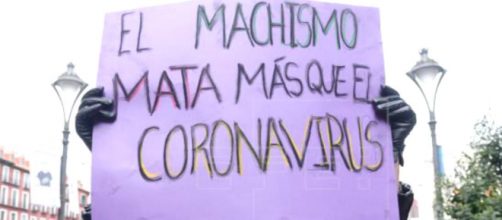 EL MACHISMO
MATA MÁS QUE EL
CORONAVIRUS